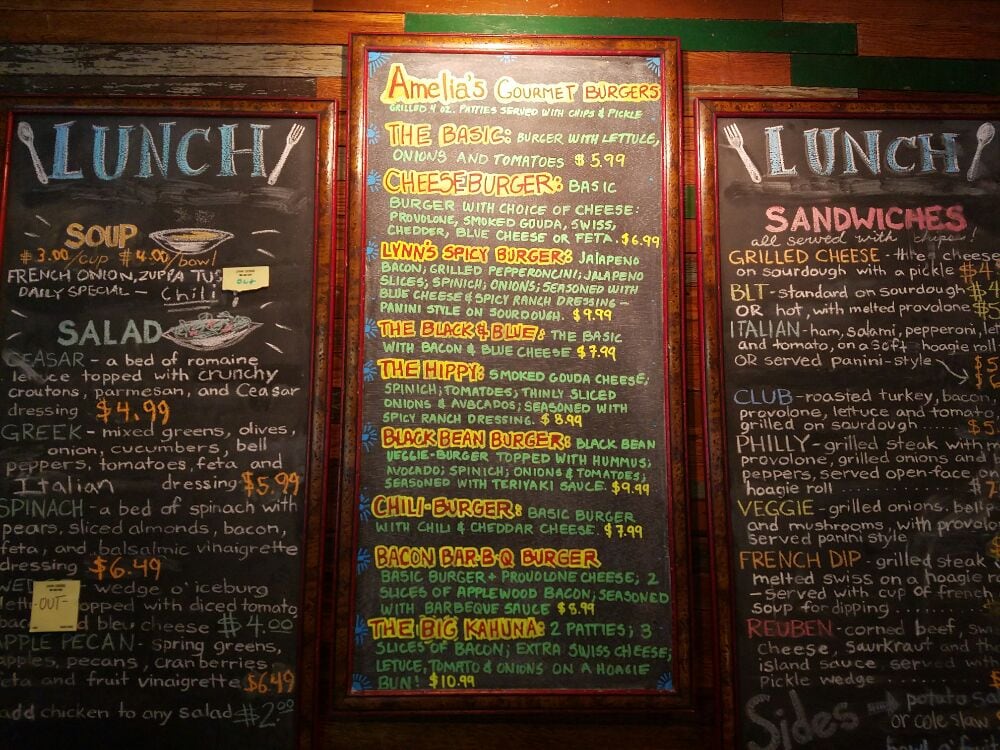 LUNCH
SOUP
$3.00/cup $4.00/bowl
FRENCH ONION, ZUPPA TUS
DAILY SPECIAL - Chili
OUT
SALAD
CEASAR - a bed of romaine
lettuce topped with crunchy
croutons, parmesan, and Ceasar
dressing $4.99
GREEK - mixed greens, olives,
onion, cucumbers, bell
peppers, tomatoes, feta and
Italian dressing $5.99
SPINACH - a bed of spinach with
pears, sliced almonds, bacon,
feta, and balsalmic vinaigrette
dressing $6.49
wedge o' iceburg
-OUT- opped with diced tomato
bleu cheese $4.00
APPLE PECAN - Spring greens,
apples, pecans, cranberries
feta and fruit vinaigrette $6.49
add chicken to any salad $2.00
Amelia's Gourmet Burgers
GRILLED 4 OZ. PATTIES SERVED WITH CHIPS & PICKLE
THE BASIC: BURGER WITH LETTUCE,
ONIONS AND TOMATOES $5.99
CHEESEBURGER: BASIC
BURGER WITH CHOICE OF CHEESE:
PROVOLONE, SMOKED GOUDA, SWISS,
CHEDDER, BLUE CHEESE OR FETA. $6.99
LYNN'S SPICY BURGER: JALAPENO
BACON; GRILLED PEPPERONCINI; JALAPENO
SLICES; SPINICH; ONIONS; SEASONED WITH
BLUE CHEESE & SPICY RANCH DRESSING -
PANINI STYLE ON SOURDOUGH. $9.99
THE BLACK & BLUE: THE BASIC
WITH BACON & BLUE CHEESE $7.99
THE HIPPY: SMOKED GOUDA CHEESE;
SPINICH; TOMATOES; THINLY SLICED
ONIONS & AVOCADOS; SEASONED WITH
SPICY RANCH DRESSING. $8.99
BLACK BEAN BURGER: BLACK BEAN
VEGGIE-BURGER TOPPED WITH HUMMUS;
AVOCADO; SPINICH; ONIONS & TOMATOES;
SEASONED WITH TERIYAKI SAUCE. $9.99
CHILI-BURGER: BASIC BURGER
WITH CHILI & CHEDDAR CHEESE. $7.99
BACON BAR-B-Q BURGER
BASIC BURGER + PROVOLONE CHEESE; 2
SLICES OF APPLEWOOD BACON; SEASONED
WITH BARBEQUE SAUCE $8.99
THE BIG KAHUNA: 2 PATTIES; 3
SLICES OF BACON; EXTRA SWISS CHEESE;
LETUCE, TOMATO & ONIONS ON A HOAGIE
BUN! $10.99
LUNCH
SANDWICHES
all served with chips!
GRILLED CHEESE - the cheese
on sourdough with a pickle $4
BLT - standard on sourdough $4
OR hot, with melted provolone $5
ITALIAN - ham, salami, pepperoni, le
and tomato, on a soft hoagie roll
OR served panini-style $5
CLUB - roasted turkey, bacon,
provolone, lettuce and tomato
grilled on sourdough ...... $5
PHILLY - grilled steak with m
provolone, grilled onions and b
peppers, served open-face on
hoagie roll ......... $7
VEGGIE - grilled onions, bell p
and mushrooms, with provolo
served panini style
FRENCH DIP - grilled steak
melted swiss on a hoagie r
- served with cup of french
soup for dipping .......
REUBEN - corned beef, swi
cheese, saurkraut and th
island sauce, served with
Pickle wedge ..........
Sides potato sa
or cole slaw